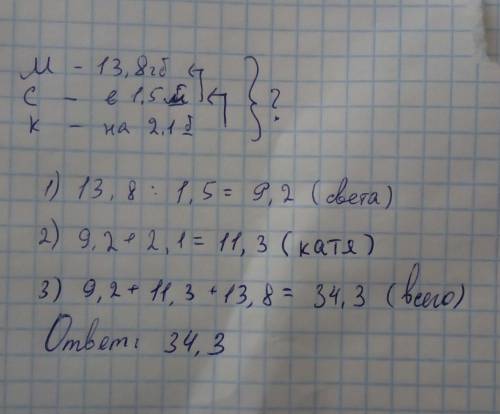 М - 13,8гб
С - в 1.5 м
К - на 2.1 б
} ?
1) 13,8 : 1,5 = 9,2 (света)
2) 9,2 + 2,1 = 11,3 (катя)
3) 9,2 + 11,3 + 13,8 = 34,3 (всего)
Ответ: 34,3